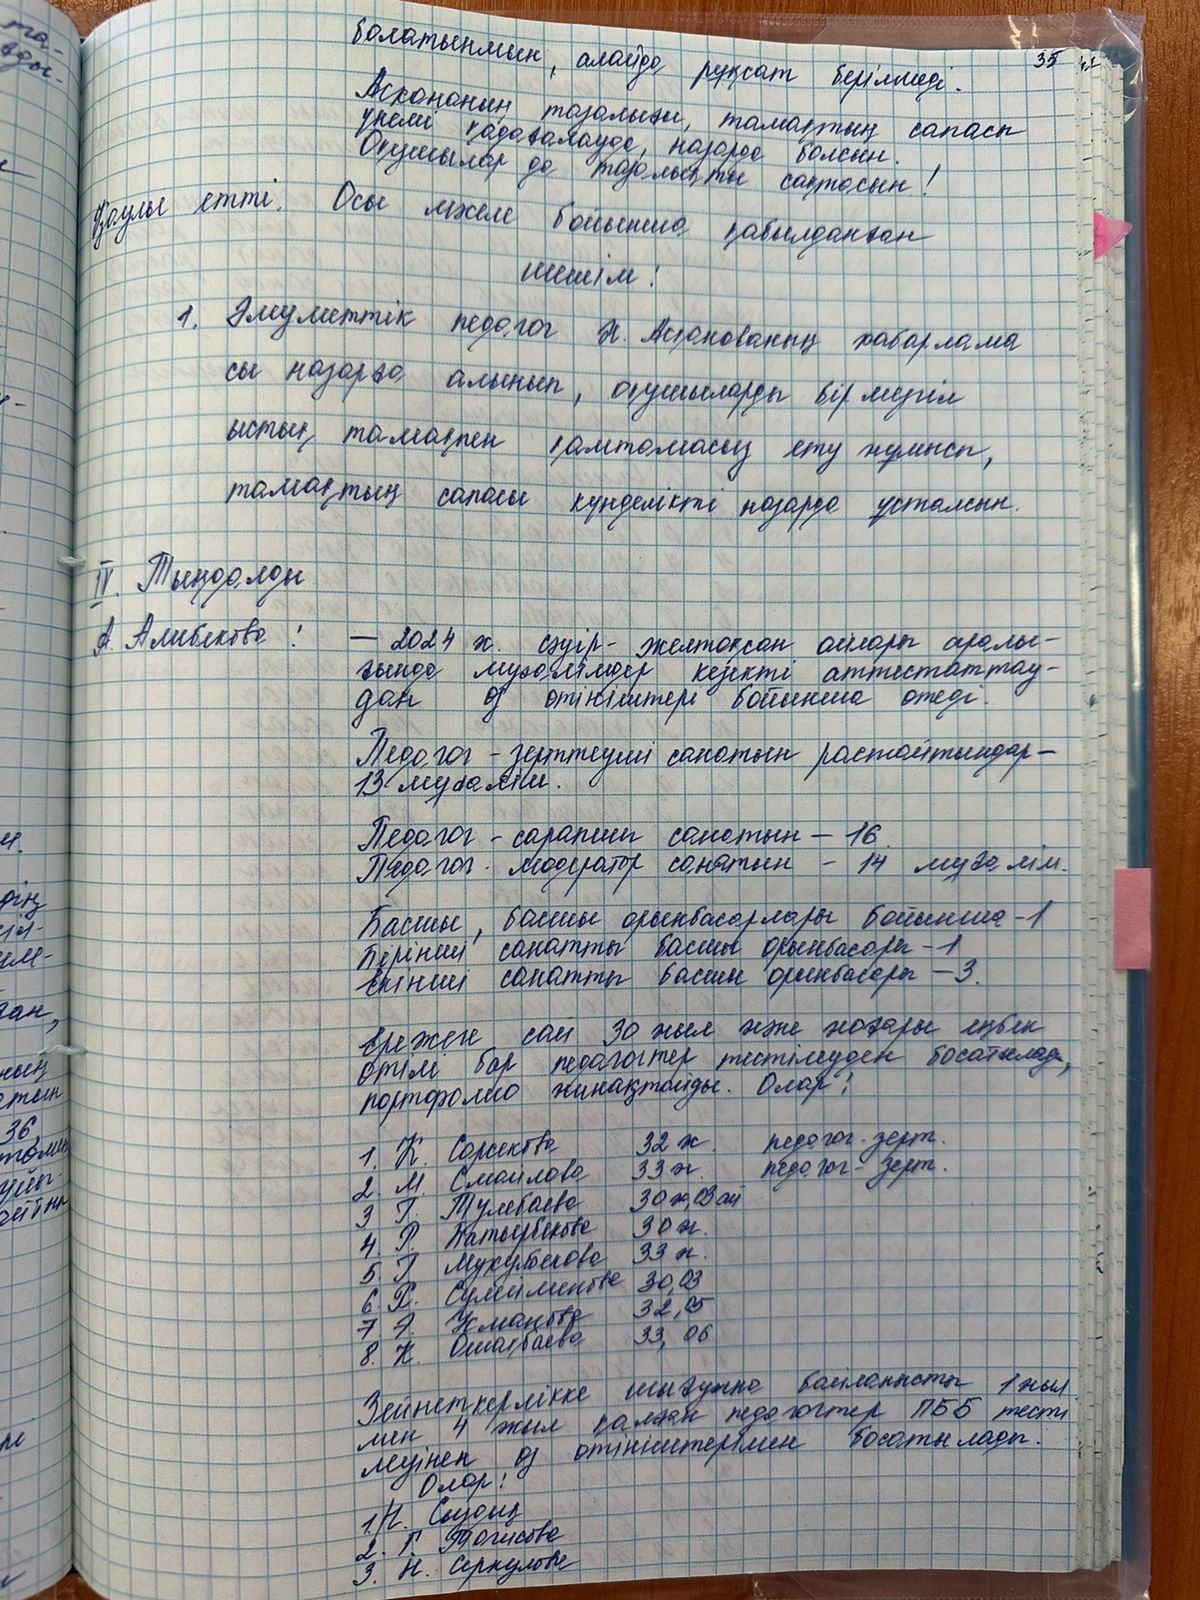 35
болатынмын, алайда рұқсат берілмеді.
Асхананың тазалығы, тамақтың сапасы
үнемі қадағалауда, назарда болсын.
Оқушылар да тазалықты сақтасын!
Қаулы етті. Осы мәселе бойынша қабылданған
шешім:
1. Әлеуметтік педагог Ж. Асқанованың хабарлама
сы назарға алынып, оқушыларды бір мезгіл
ыстық тамақпен қамтамасыз ету жұмысы,
тамақтың сапасы күнделікті назарда ұсталсын.
IV. Тыңдалды
А. Алибекова: — 2024 ж. сәуір - желтоқсан айлары аралы-
ғында мұғалімдер кезекті аттестаттау-
дан өз өтініштері бойынша өтеді.
Педагог - зерттеуші санатын растайтындар -
13 мұғалім.
Педагог - сарапшы санатын - 16
Педагог - модератор санатын - 14 мұғалім.
Басшы, басшы орынбасарлары бойынша - 1
Бірінші санатты басшы орынбасары - 1
екінші санатты басшы орынбасары - 3.
Ережеге сай 30 жыл және жоғары еңбек
өтілі бар педагогтер тестілеуден босатылады,
портфолио жинақтайды. Олар:
1. К. Сарсекова 32 ж педагог-зерт.
2. М. Смаилова 33 ж. педагог-зерт.
3 Г. Тулебаева 30 ж, 03 ай
4. Р. Батырбекова 30 ж.
5. Г Мукулбекова 33 ж.
6. Р. Сулейменова 30,03
7 А. Усманова 32,05
8. К. Омарбаева 33,06
Зейнеткерлікке шығуына байланысты 1 жыл
мен 4 жыл қалған педагогтер ПББ тесті
леуінен өз өтініштерімен босатылады.
Олар:
1. Н. Сыздық
2. Г. Тогисова
3. Н. Серкулова